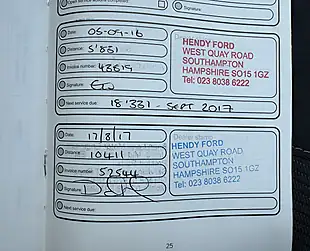 Signature:
Date: 05-09-16
Distance: 5'831
Invoice number: 43619
Signature:
Next service due: 18'331 - SEPT 2017
HENDY FORD
WEST QUAY ROAD
SOUTHAMPTON
HAMPSHIRE SO15 1GZ
Tel: 023 8038 6222
Date: 17/8/17
Distance: 10411
Invoice number: 52544
Signature:
Next service due:
Dealer stamp
HENDY FORD
WEST QUAY ROAD
SOUTHAMPTON
HAMPSHIRE SO15 1GZ
Tel: 023 8038 6222
25